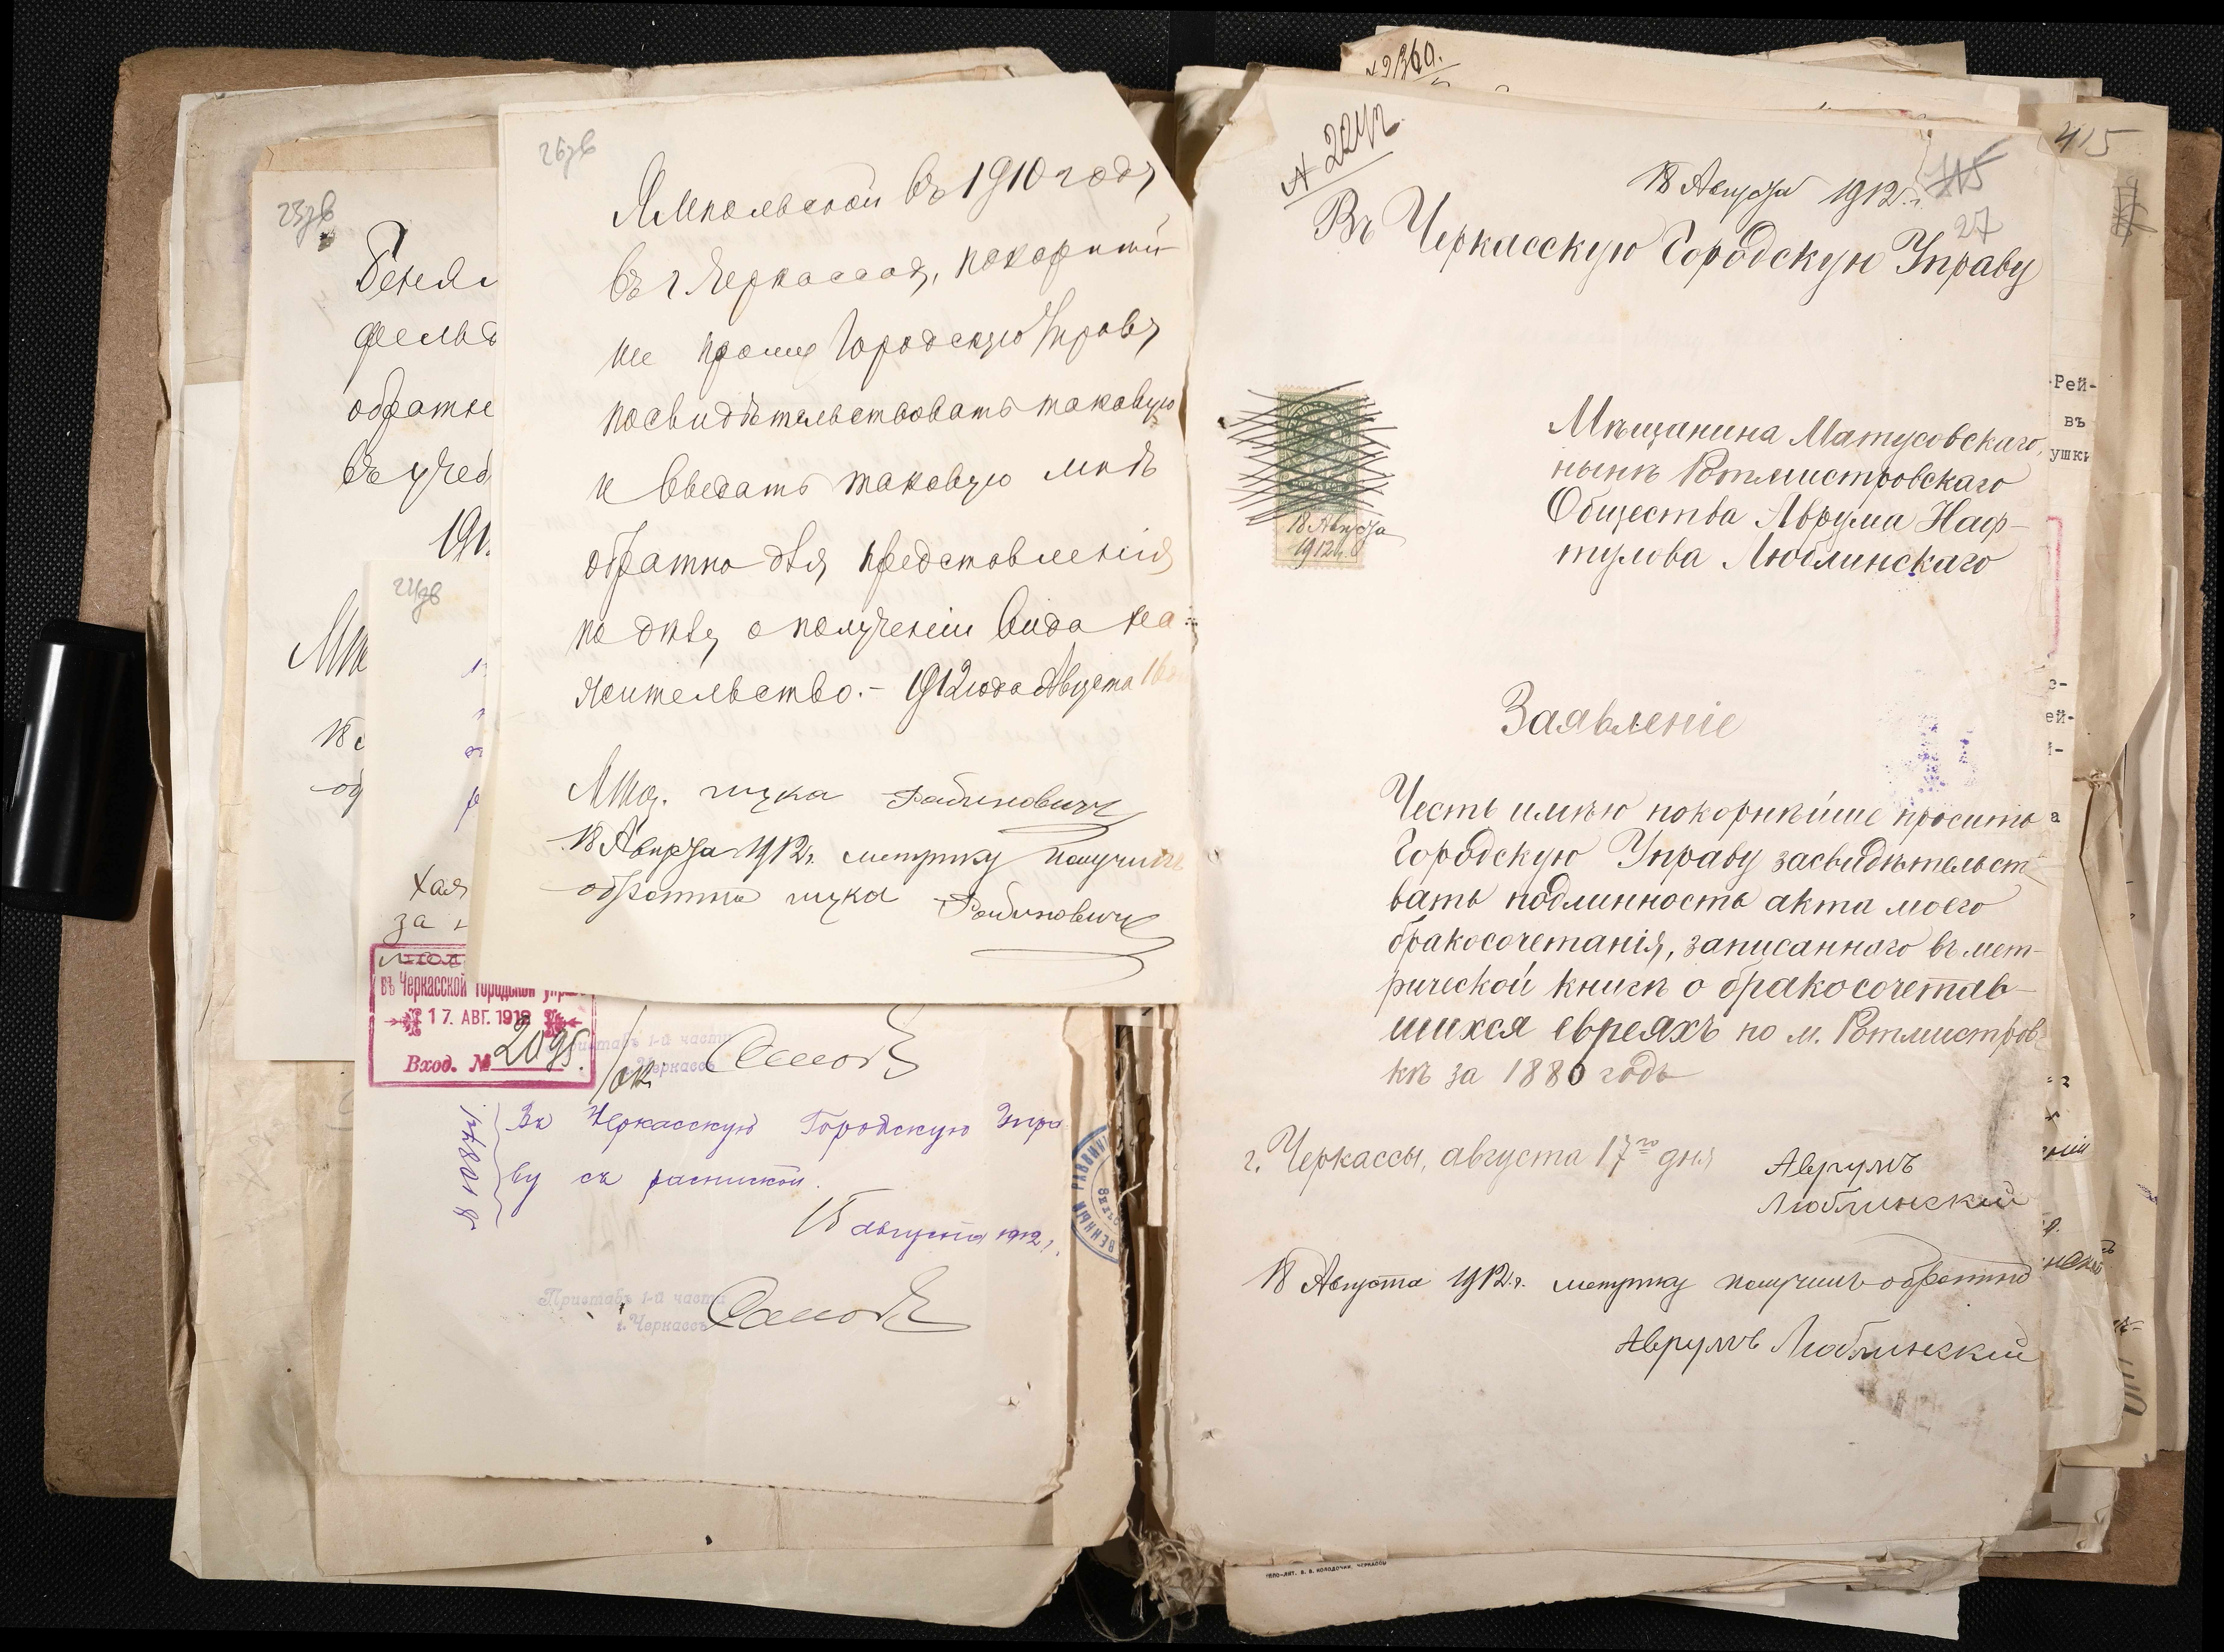 26зв
Ямпольской въ 1910 году
въ г Черкассах, покорнѣй
ше прошу Городскую Управу
посвидѣтельствовать таковую
и выдать таковую мнѣ
обратно для представленія
по дѣлу о полученіи вида на
жительство.- 1912 года Августа 16
Мѣщ. ицка Рабиновичъ
18 Августа 1912 г. метрику получилъ
обратно ицка Рабиновичъ
23зв
Беня
фельд
обратно
въ учеб
191
Мѣ
18
об
24зв
хая
за
въ Черкасской Городской Упра
17. АВГ. 1912
Вход. № 2095.
Приставъ 1-й части
г. Черкассъ
Въ Черкасскую Городскую Упра
ву съ распиской.
15 августа 1912 г.
№ 10874
Приставъ 1-й части
г. Черкассъ
ВЕННЫЙ РАВВИНЪ
№ 2360.
№ 2242
415
18 Августа 1912 г.
27
Въ Черкасскую Городскую Управу
18 Августа
1912 г.
Мѣщанина Матусовскаго,
нынѣ Ротмистровскаго
Общества Аврума Наф-
тулова Люблинскаго
Заявленіе
Честь имѣю покорнѣйше просить
Городскую Управу засвидѣтельст-
вать подлинность акта моего
бракосочетанія, записаннаго въ мет-
рической книгѣ о бракосочетав-
шихся евреяхъ по м. Ротмистров-
кѣ за 1880 годъ
г. Черкассы, августа 17го дня
Аврумъ
Люблинскій
18 Августа 1912 г. метрику получилъ обратно
Аврумъ Люблинскій
Рей-
въ
ушкѣ
ей-
а
ТИПО-ЛИТ. В. В. КОЛОДОЧКИ, ЧЕРКАССЫ